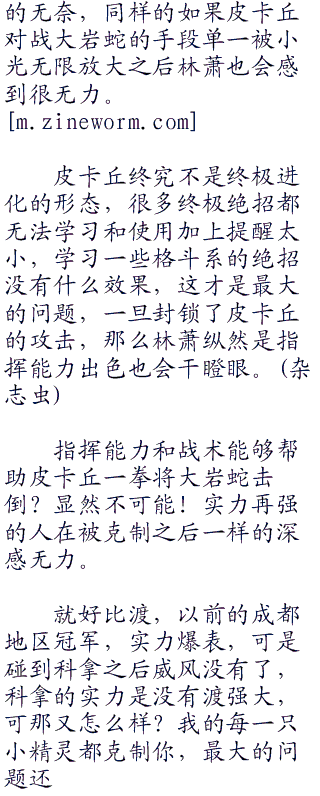 的无奈，同样的如果皮卡丘
对战大岩蛇的手段单一被小
光无限放大之后林萧也会感
到很无力。
[m.zineworm.com]
皮卡丘终究不是终极进
化的形态，很多终极绝招都
无法学习和使用加上提醒太
小，学习一些格斗系的绝招
没有什么效果，这才是最大
的问题，一旦封锁了皮卡丘
的攻击，那么林萧纵然是指
挥能力出色也会干瞪眼。(杂
志虫)
指挥能力和战术能够帮
助皮卡丘一拳将大岩蛇击
倒？显然不可能！实力再强
的人在被克制之后一样的深
感无力。
就好比渡，以前的成都
地区冠军，实力爆表，可是
碰到科拿之后威风没有了，
科拿的实力是没有渡强大，
可那又怎么样？我的每一只
小精灵都克制你，最大的问
题还